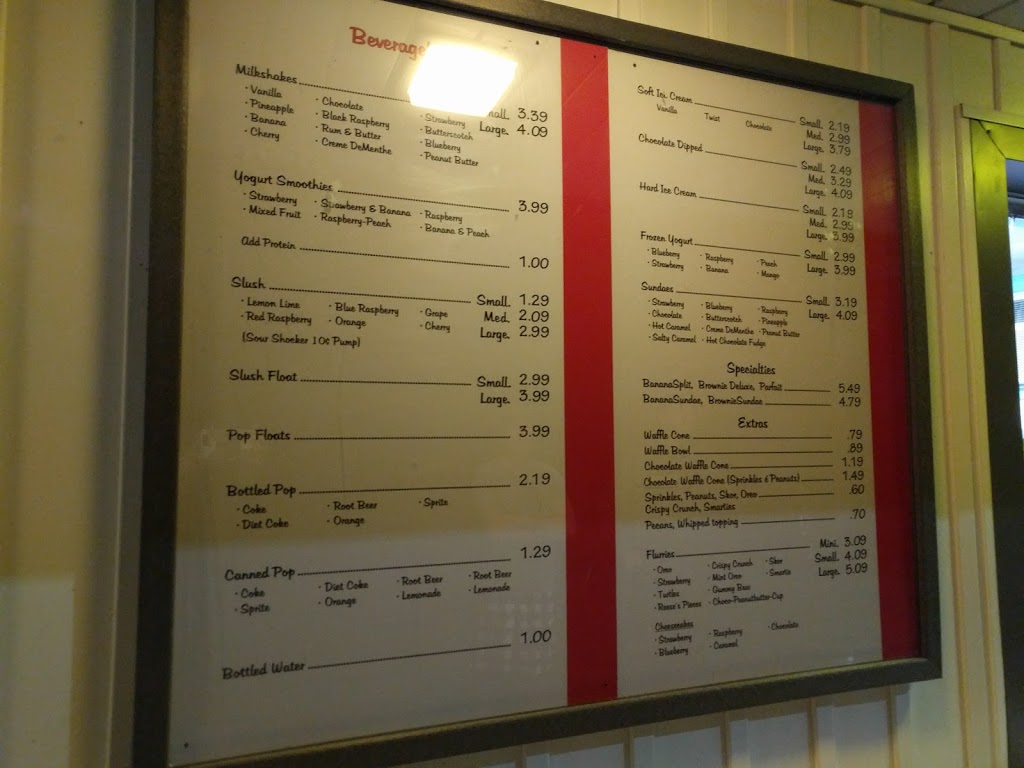 Beverage
Milkshakes
Small 3.39
Large 4.09
· Vanilla · Chocolate · Strawberry
· Pineapple · Black Raspberry · Butterscotch
· Banana · Rum & Butter · Blueberry
· Cherry · Creme DeMenthe · Peanut Butter
Yogurt Smoothies 3.99
· Strawberry · Strawberry & Banana · Raspberry
· Mixed Fruit · Raspberry-Peach · Banana & Peach
Add Protein 1.00
Slush Small 1.29
· Lemon Lime · Blue Raspberry · Grape Med. 2.09
· Red Raspberry · Orange · Cherry Large 2.99
(Sour Shocker 10¢ Pump)
Slush Float Small 2.99
Large 3.99
Pop Floats 3.99
Bottled Pop 2.19
· Coke · Root Beer · Sprite
· Diet Coke · Orange
Canned Pop 1.29
· Coke · Diet Coke · Root Beer · Root Beer
· Sprite · Orange · Lemonade · Lemonade
Bottled Water 1.00
Soft Ice Cream Small 2.19
Vanilla Twist Chocolate Med. 2.99
Large 3.79
Chocolate Dipped Small 2.49
Med. 3.29
Large 4.09
Hard Ice Cream Small 2.19
Med. 2.99
Large 3.99
Frozen Yogurt Small 2.99
· Blueberry · Raspberry · Peach Large 3.99
· Strawberry · Banana · Mango
Sundaes Small 3.19
· Strawberry · Blueberry · Raspberry Large 4.09
· Chocolate · Butterscotch · Pineapple
· Hot Caramel · Creme DeMenthe · Peanut Butter
· Salty Caramel · Hot Chocolate Fudge
Specialties
BananaSplit, Brownie Deluxe, Parfait 5.49
BananaSundae, BrownieSundae 4.79
Extras
Waffle Cone .79
Waffle Bowl .89
Chocolate Waffle Cone 1.19
Chocolate Waffle Cone (Sprinkles & Peanuts) 1.49
Sprinkles, Peanuts, Skor, Oreo .60
Crispy Crunch, Smarties
Pecans, Whipped topping .70
Flurries Mini. 3.09
· Oreo · Crispy Crunch · Skor Small 4.09
· Strawberry · Mint Oreo · Smartie Large 5.09
· Turtles · Gummy Bear
· Reese's Pieces · Choco-Peanutbutter-Cup
Cheesecakes
· Strawberry · Raspberry · Chocolate
· Blueberry · Caramel